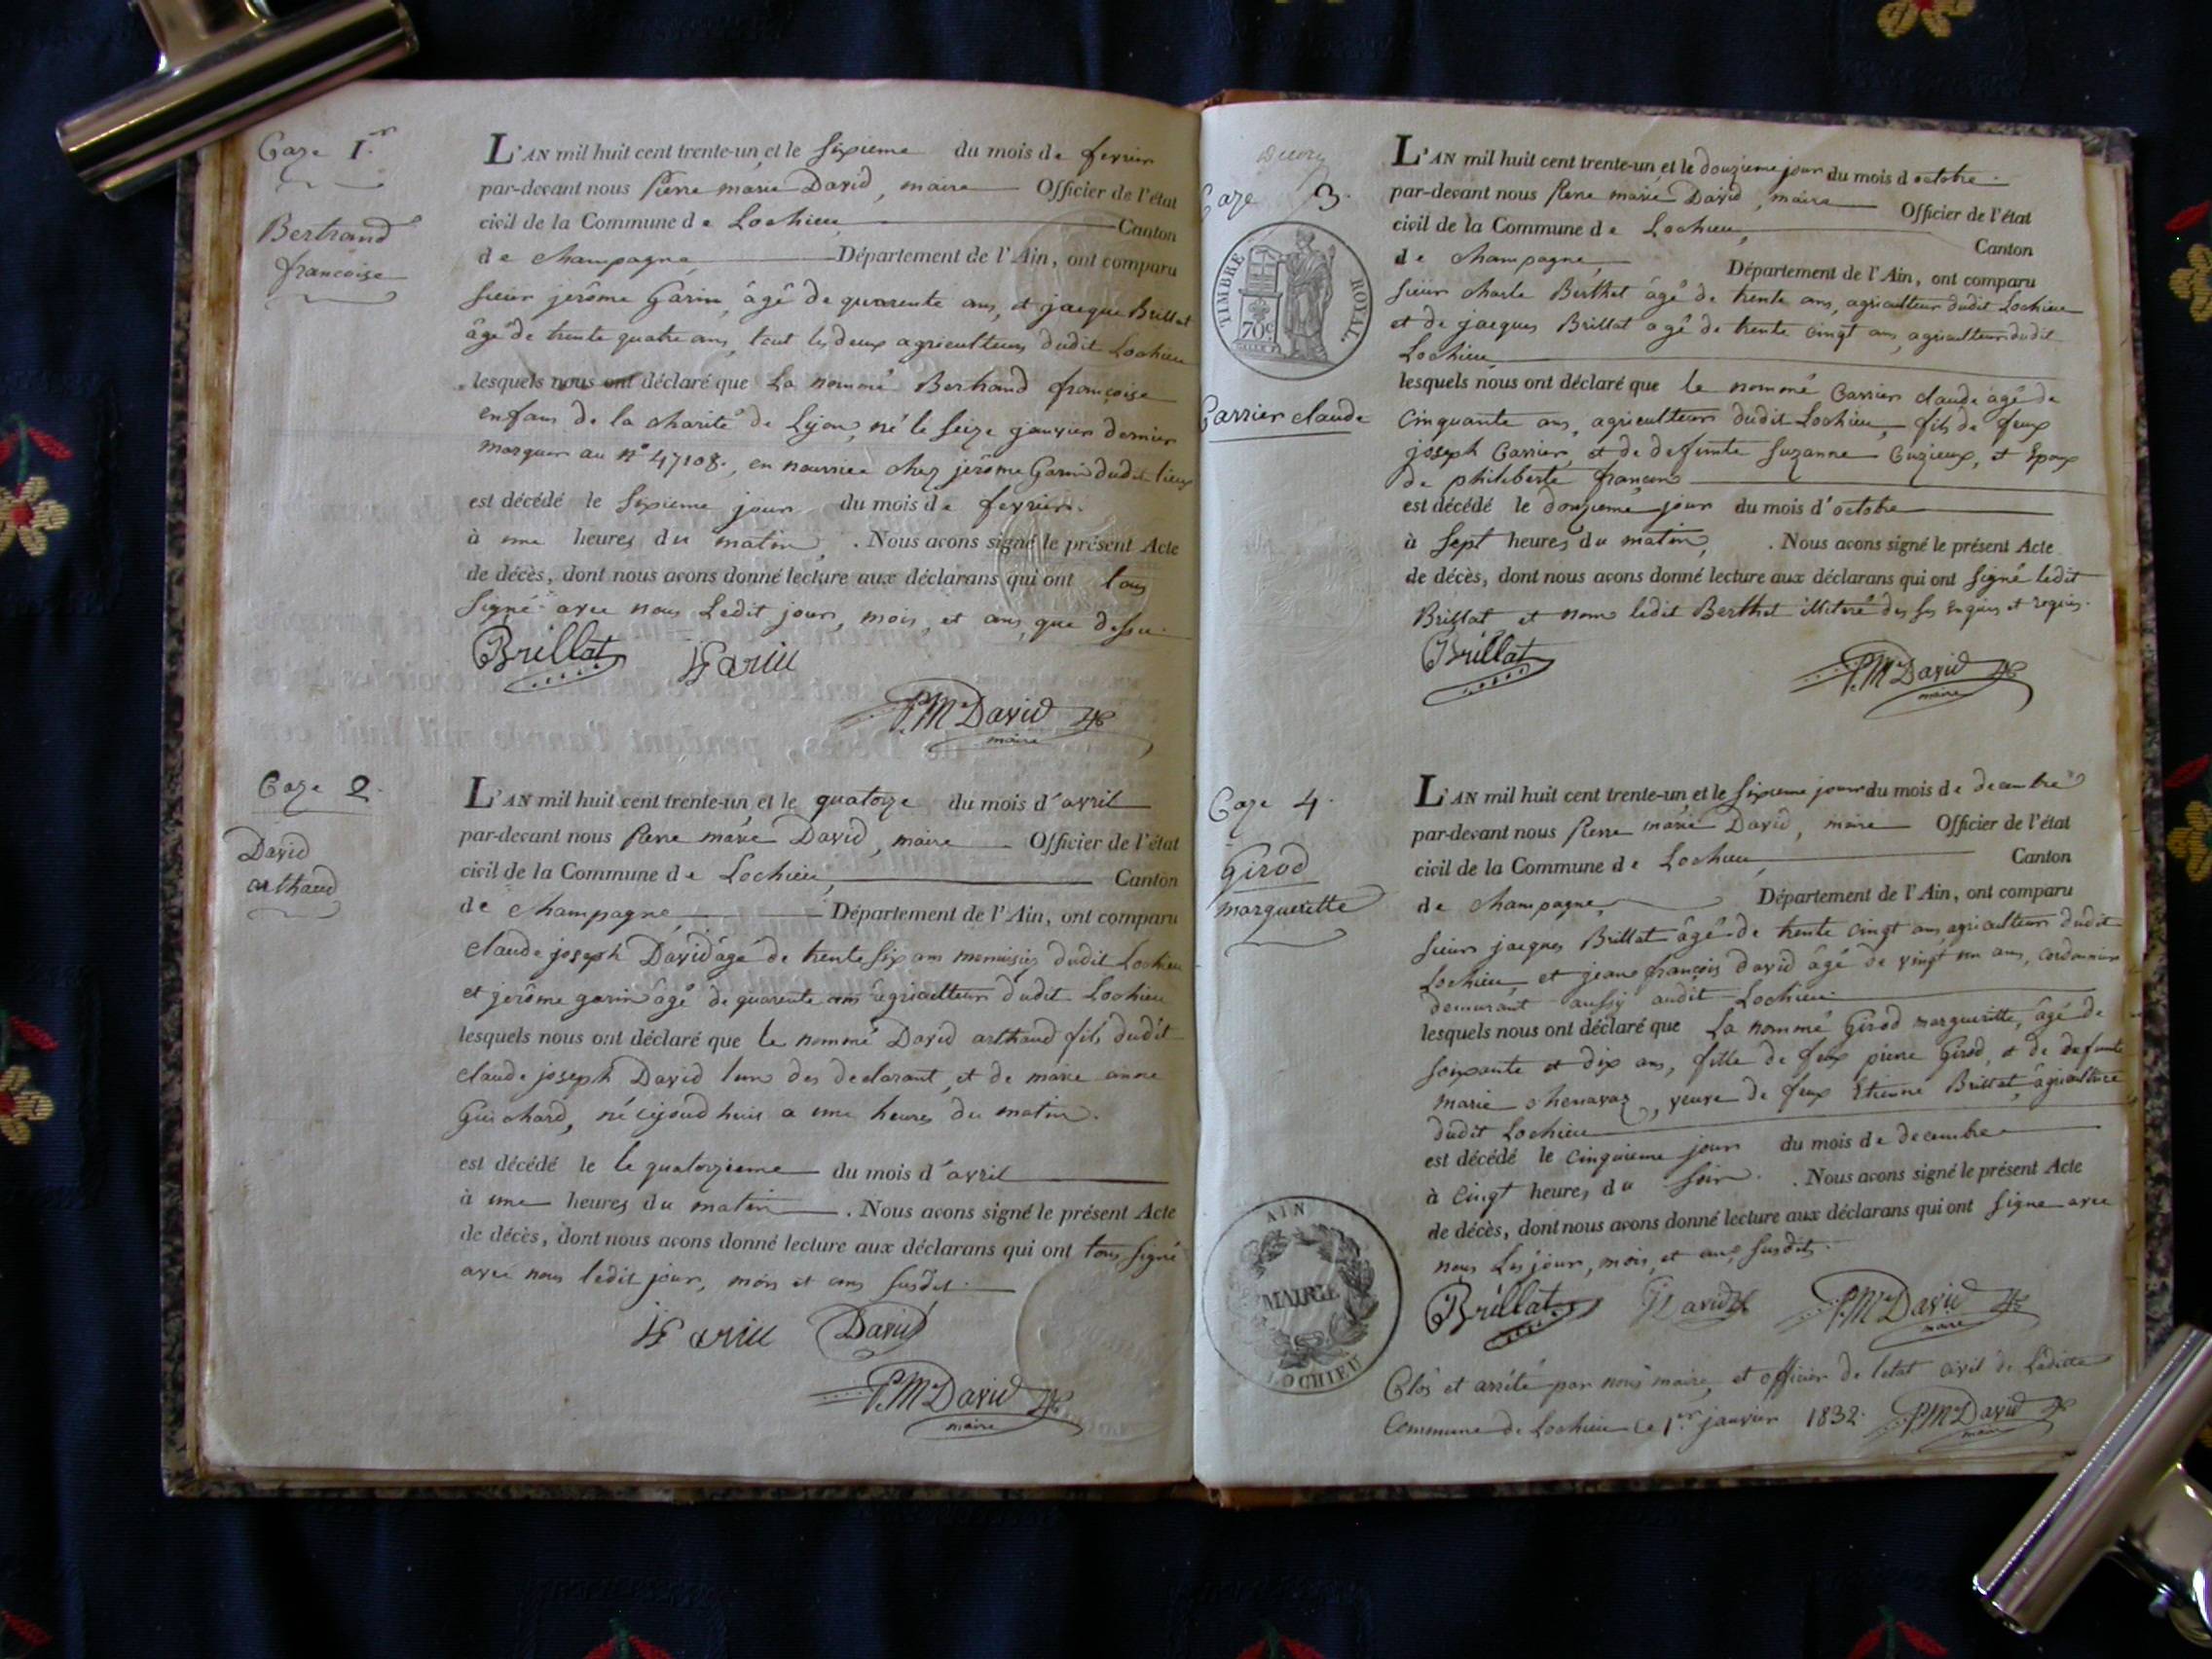 Caze 1.er
Bertrand
françoise
L'AN mil huit cent trente-un et le sixieme du mois de fevrier
par-devant nous Pierre marie David, maire Officier de l'état
civil de la Commune de Lochieu Canton
de champagne Département de l'Ain, ont comparu
sieur jerôme Garin, âgé de quarente ans, et jacque Brillat
âgé de trente quatre ans, tout les deux agriculteurs dudit Lochieu
lesquels nous ont déclaré que La nommé Bertrand françoise
enfans de la charité de Lyon, né le seize janvier dernier
marquer au N° 47108., en nourrice chez jerôme Garin dudit lieux
est décédé le sixieme jour du mois de fevrier.
à une heures du matin, . Nous avons signé le présent Acte
de décès, dont nous avons donné lecture aux déclarans qui ont tous
signé avec nous Ledit jour, mois, et ans, que dessu.
Brillat JGarin
P.M David
maire
Caze 2.
David
arthaud
L'AN mil huit cent trente-un et le quatorze du mois d'avril
par-devant nous Pierre marie David, maire Officier de l'état
civil de la Commune de Lochieu, Canton
de champagne, Département de l'Ain, ont comparu
claude joseph David âgé de trente six ans menuisier dudit Lochieu
et jerôme garin âgé de quarente ans agriculteur dudit Lochieu
lesquels nous ont déclaré que le nommé David arthaud fils dudit
claude joseph David l'un des declarant, et de marie anne
Guichard, né cejourd huis a une heures du matin.
est décédé le le quatorzieme du mois d'avril
à une heures du matin . Nous avons signé le présent Acte
de décès, dont nous avons donné lecture aux déclarans qui ont tous signé
avec nous ledit jour, mois et ans susdit.
JGarin David
P.M David
maire
Caze 3.
TIMBRE ROYAL.
70c
Carrier claude
L'AN mil huit cent trente-un et le douzieme jour du mois d octobre.
par-devant nous Pierre marie David, maire Officier de l'état
civil de la Commune de Lochieu, Canton
de champagne, Département de l'Ain, ont comparu
sieur charle Berthet âgé de trente ans, agriculteur dudit Lochieu
et de jacques Brillat agé de trente cinqt ans, agriculteur dudit
Lochieu
lesquels nous ont déclaré que le nommé Carrier claude âgé de
cinquante ans, agriculteur dudit Lochieu, fils de feux
joseph Carrier, et de defunte suzanne Cuzieux, et Epoux
de philiberte françon
est décédé le douzieme jour du mois d'octobre
à sept heures du matin, . Nous avons signé le présent Acte
de décès, dont nous avons donné lecture aux déclarans qui ont signé ledit
Brillat et nom ledit Berthet illiteré des ses enquis et requis.
Brillat P.M David
maire
Caze 4.
Girod
margueritte
L'AN mil huit cent trente-un et le sixieme jour du mois de decembre
par-devant nous Pierre marie David, maire Officier de l'état
civil de la Commune de Lochieu, Canton
de champagne, Département de l'Ain, ont comparu
sieur jacques Brillat âgé de trente cinqt ans, agriculteur dudit
Lochieu, et jean françois david âgé de vingt un ans, cordonnier
demurant aussy audit Lochieu
lesquels nous ont déclaré que La nommé Girod margueritte, âgé de
soixante et dix ans, fille de feux pierre Girod, et de defunte
marie chenavaz, veuve de feux Etienne Brillat, agricultrice
dudit Lochieu
est décédé le cinquieme jour du mois de decembre
à cinqt heures du soir. . Nous avons signé le présent Acte
de décès, dont nous avons donné lecture aux déclarans qui ont signé avec
nous Les jour, mois, et ans, susdits.
Brillat David P.M David
maire
AIN
MAIRIE
LOCHIEU
Clos et arrêté par nous maire, et officier de letat civil de Leditte
Commune de Lochieu le 1.er janvier 1832. P.M David
maire